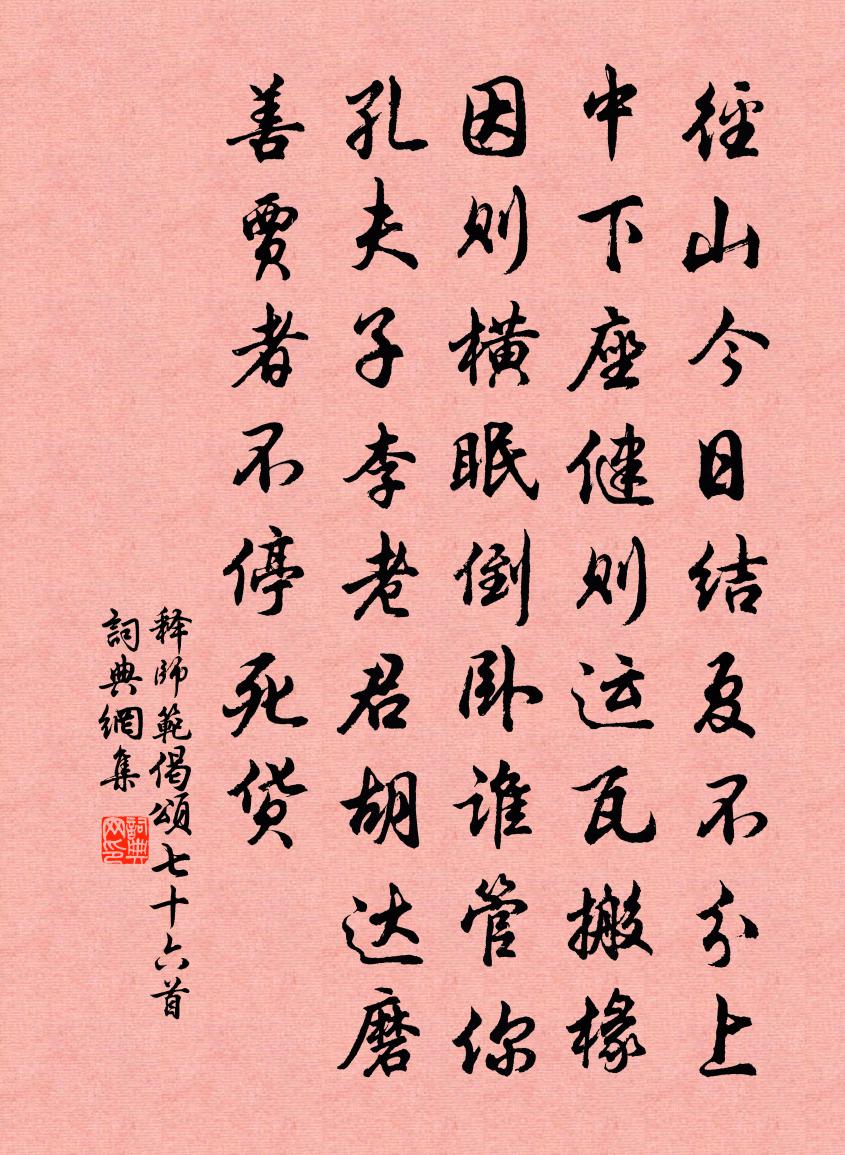 徑山今日结夏不分上
中下座健则运瓦搬椽
因则横眠倒卧谁管你
孔夫子李老君胡达磨
善贾者不停死货
释師範偈頌七十六首
詞典網集
詞典网印